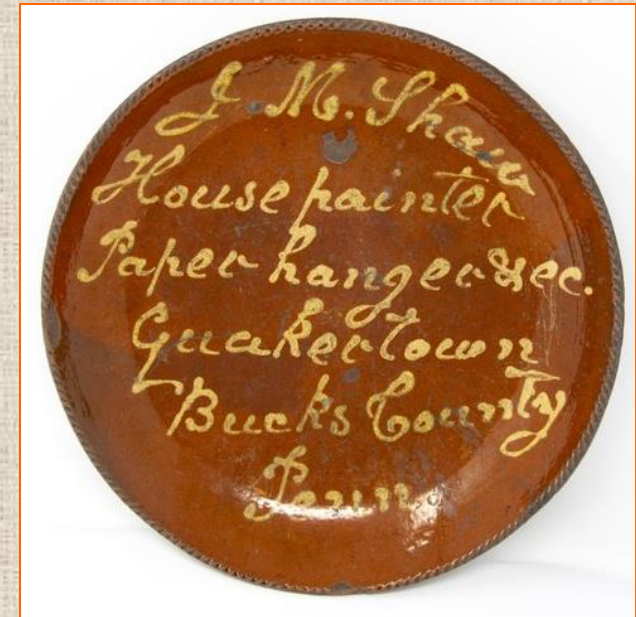 J. M. Shaw
House painter
Paper hanger &ec.
Quakertown
Bucks County
Penn.